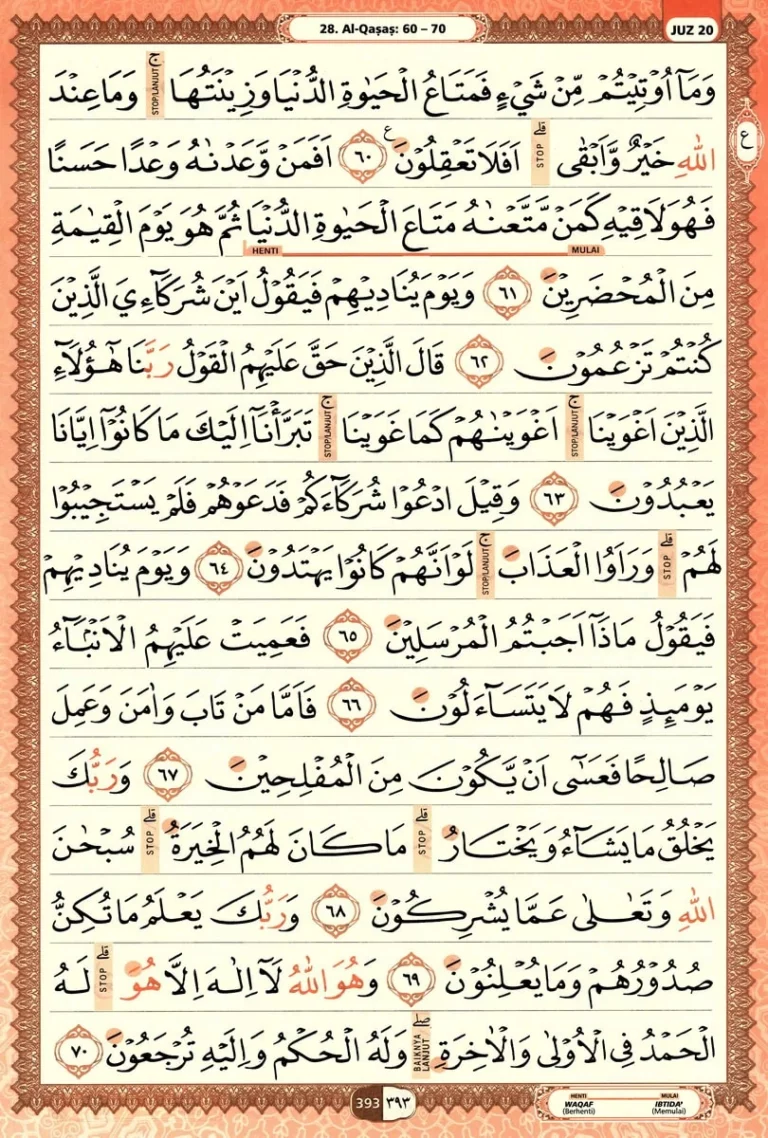 28. Al-Qaṣaṣ: 60 – 70
JUZ 20
وَمَآ اُوْتِيْتُمْ مِّنْ شَيْءٍ فَمَتَاعُ الْحَيٰوةِ الدُّنْيَا وَزِيْنَتُهَا ۚ STOP/LANJUT وَمَا عِنْدَ
ع
اللّٰهِ خَيْرٌ وَّاَبْقٰىۗ STOP اَفَلَا تَعْقِلُوْنَ ࣖ ٦٠ اَفَمَنْ وَّعَدْنٰهُ وَعْدًا حَسَنًا
فَهُوَ لَاقِيْهِ كَمَنْ مَّتَّعْنٰهُ مَتَاعَ الْحَيٰوةِ الدُّنْيَا ثُمَّ هُوَ يَوْمَ الْقِيٰمَةِ
MULAI HENTI
مِنَ الْمُحْضَرِيْنَ ٦١ وَيَوْمَ يُنَادِيْهِمْ فَيَقُوْلُ اَيْنَ شُرَكَاۤءِيَ الَّذِيْنَ
كُنْتُمْ تَزْعُمُوْنَ ٦٢ قَالَ الَّذِيْنَ حَقَّ عَلَيْهِمُ الْقَوْلُ رَبَّنَا هٰٓؤُلَاۤءِ
الَّذِيْنَ اَغْوَيْنَاۚ STOP/LANJUT اَغْوَيْنٰهُمْ كَمَا غَوَيْنَاۚ STOP/LANJUT تَبَرَّأْنَآ اِلَيْكَ مَا كَانُوْٓا اِيَّانَا
يَعْبُدُوْنَ ٦٣ وَقِيْلَ ادْعُوْا شُرَكَاۤءَكُمْ فَدَعَوْهُمْ فَلَمْ يَسْتَجِيْبُوْا
لَهُمْۗ STOP وَرَاَوُا الْعَذَابَۚ STOP/LANJUT لَوْ اَنَّهُمْ كَانُوْا يَهْتَدُوْنَ ٦٤ وَيَوْمَ يُنَادِيْهِمْ
فَيَقُوْلُ مَاذَآ اَجَبْتُمُ الْمُرْسَلِيْنَ ٦٥ فَعَمِيَتْ عَلَيْهِمُ الْاَنْۢبَاۤءُ
يَوْمَىِٕذٍ فَهُمْ لَا يَتَسَاۤءَلُوْنَ ٦٦ فَاَمَّا مَنْ تَابَ وَاٰمَنَ وَعَمِلَ
صَالِحًا فَعَسٰٓى اَنْ يَّكُوْنَ مِنَ الْمُفْلِحِيْنَ ٦٧ وَرَبُّكَ
يَخْلُقُ مَا يَشَاۤءُ وَيَخْتَارُۗ STOP مَا كَانَ لَهُمُ الْخِيَرَةُۗ STOP سُبْحٰنَ
اللّٰهِ وَتَعٰلٰى عَمَّا يُشْرِكُوْنَ ٦٨ وَرَبُّكَ يَعْلَمُ مَا تُكِنُّ
صُدُوْرُهُمْ وَمَا يُعْلِنُوْنَ ٦٩ وَهُوَ اللّٰهُ لَآ اِلٰهَ اِلَّا هُوَۗ STOP لَهُ
الْحَمْدُ فِى الْاُوْلٰى وَالْاٰخِرَةِۖ BAIKNYA LANJUT وَلَهُ الْحُكْمُ وَاِلَيْهِ تُرْجَعُوْنَ ٧٠
393 ٣٩٣
HENTI MULAI
WAQAF IBTIDA'
(Berhenti) (Memulai)